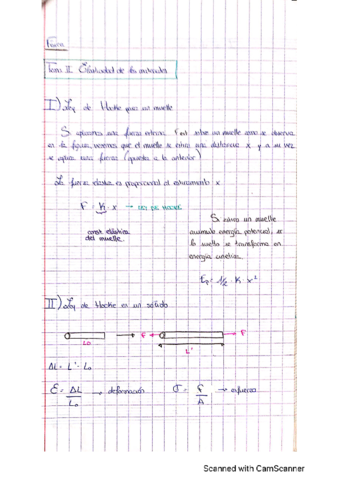 Física
Tema II. Elasticidad de los materiales
I) Ley de Hooke para un muelle
Si aplicamos una fuerza externa Fext sobre un muelle como se observa
en la figura, veremos que el muelle se estira una distancia x y a su vez
se opone una fuerza (opuesta a la anterior)
La fuerza elástica es proporcional al estiramiento x
F = K · x → LEY DE HOOKE
const elástica
del muelle
Si estira un muelle
acumula energía potencial, si
lo suelto se transforma en
energía cinética
Ep = 1/2 · K · x²
II) Ley de Hooke en un sólido
L0
F
F
L'
ΔL = L' - L0
Ɛ = ΔL / L0 → deformación
σ = F / A → esfuerzo
Scanned with CamScanner